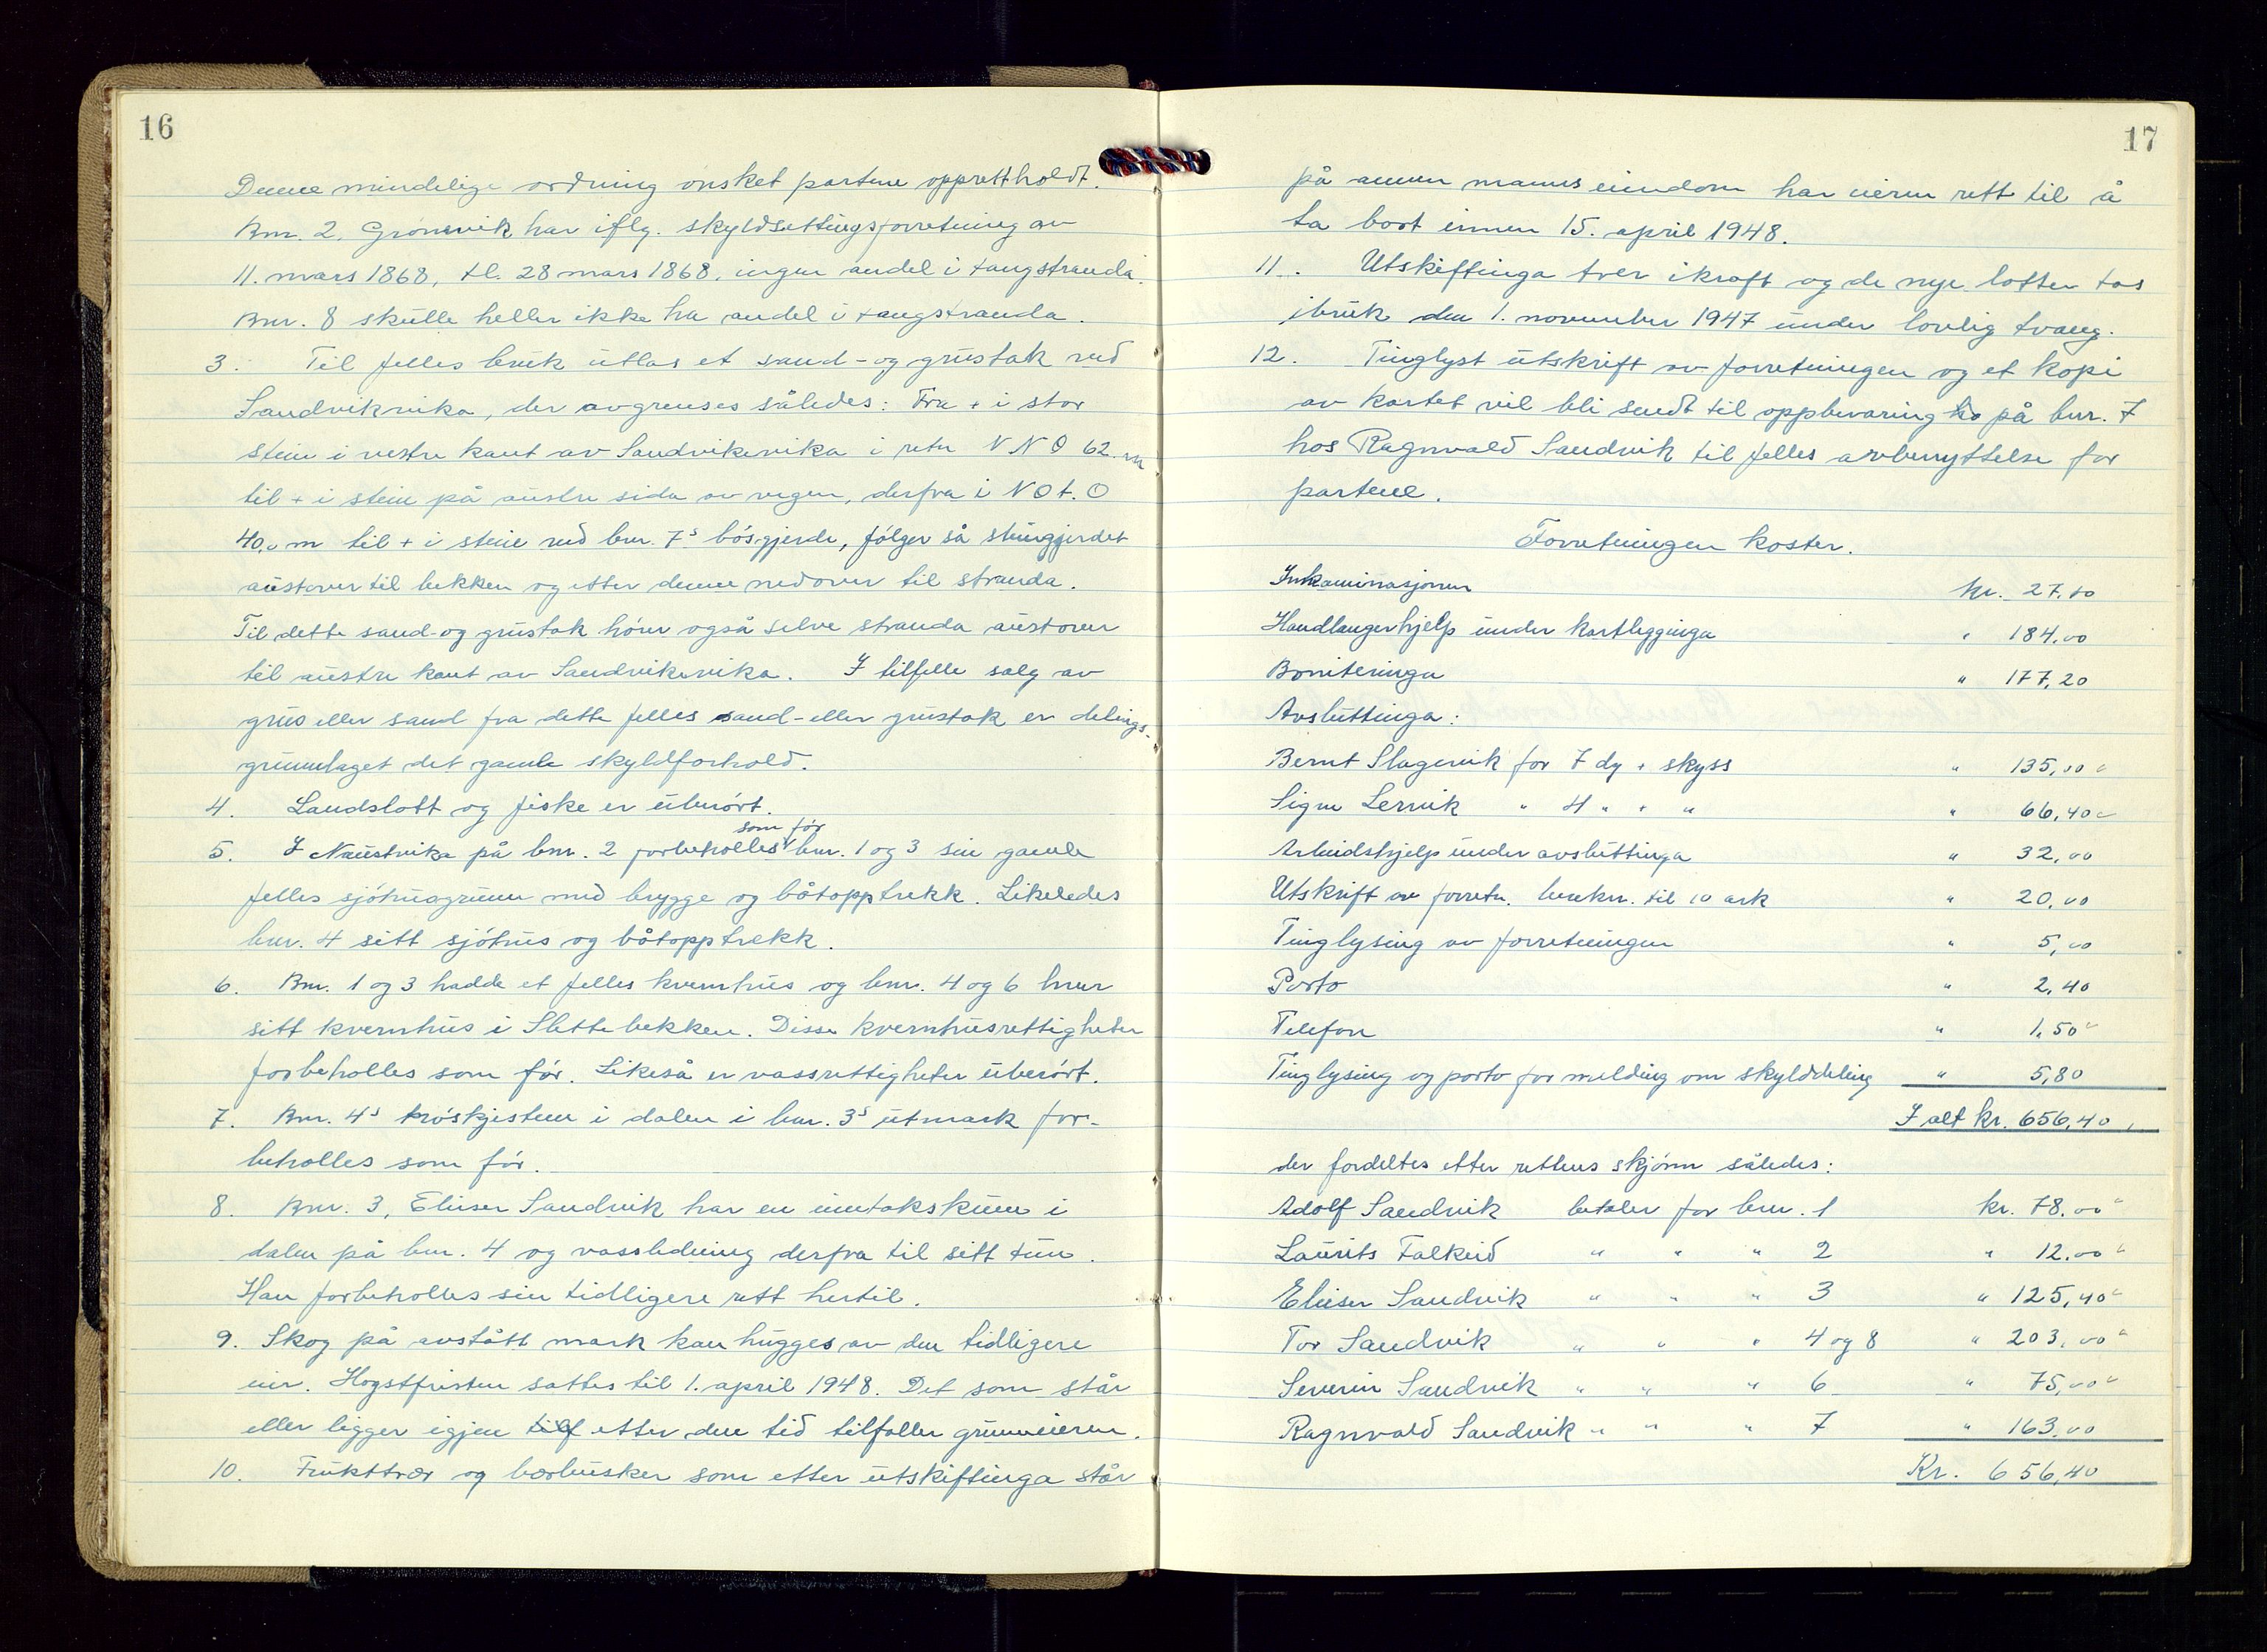 16
Denne mindelige ordning ønsket partene opprettholdt.
Bnr. 2, Grønsvik har iflg. skyldsettingsforretning av
11. mars 1868, tl. 28 mars 1868, ingen andel i tangstranda.
Bnr. 8 skulle heller ikke ha andel i tangstranda.
3. Til felles bruk utlas et sand- og grustak ved
Sandvikvika, der avgrenses således: Fra + i stor
stein i vestre kant av Sandvikvika i retn N N Ø 62. m
til + i stein på austre sida av vegen, derfra i N O t. O
40,0 m til + i steie ved bnr. 7s bøsgjerde, følger så steingjerdet
austover til bekken og etter denne nedover til stranda.
Til dette sand- og grustak hører også selve stranda austover
til austre kant av Sandvikvika. I tilfelle salg av
grus eller sand fra dette felles sand- eller grustak er delings-
grunnlaget det gamle skyldforhold.
4. Landslott og fiske er uberørt.
som før
5. I Naustvika på bnr. 2 forbeholles bnr. 1 og 3 sin gamle
felles sjøhusgrunn med brygge og båtopptrekk. Likeledes
bnr. 4 sitt sjøhus og båtopptrekk.
6. Bnr. 1 og 3 hadde et felles kvernhus og bnr. 4 og 6 hver
sitt kvernhus i Slettebekken. Disse kvernhusrettigheter
forbeholles som før. Likeså er vassrettigheter uberørt.
7. Bnr. 4s trøskjestem i dalen i bnr. 3s utmark for-
beholles som før.
8. Bnr. 3, Elieser Sandvik har en inntakskum i
dalen på bnr. 4 og vassledning derfra til sitt tun.
Han forbeholles sin tidligere rett hertil.
9. Skog på avstått mark kan hugges av den tidligere
eier. Hogstfristen sattes til 1. april 1948. Det som står
eller ligger igjen etter den tid tilfaller grunneieren.
10. Frukttrær og bærbusker som etter utskiftinga står
17
på annen manns eiendom har eieren rett til å
ta bort innen 15. april 1948.
11. Utskiftinga trer ikraft og de nye lotter tas
ibruk den 1. november 1947 under lovlig tvang.
12. Tinglyst utskrift av forretningen og et kopi
av kartet vil bli sendt til oppbevaring ho på bnr. 7
hos Ragnvald Sandvik til felles avbenyttelse for
partene.
Forretningen koster.
Inkaminasjonen kr. 27,10
Handlangerhjelp under kartlegginga " 184,00
Boniteringa " 177,20
Avsluttinga:
Bernt Slagvik for 7 dg + skyss " 135,00
Signe Lervik " 4 " + " " 66,40
Arbeidshjelp under avsluttinga " 32,00
Utskrift av forretn. berekn. til 10 ark " 20,00
Tinglysing av forretningen " 5,00
Porto " 2,40
Telefon " 1,50
Tinglysing og porto for melding om skylddeling " 5,80
I alt kr. 656,40
der fordeltes etter rettens skjønn således:
Adolf Sandvik betaler for bnr. 1 kr. 78,00
Laurits Falkeid " " " 2 " 12,00
Elieser Sandvik " " " 3 " 125,40
Tor Sandvik " " " 4 og 8 " 203,00
Severin Sandvik " " " 6 " 75,00
Ragnvald Sandvik " " " 7 " 163,00
Kr. 656,40